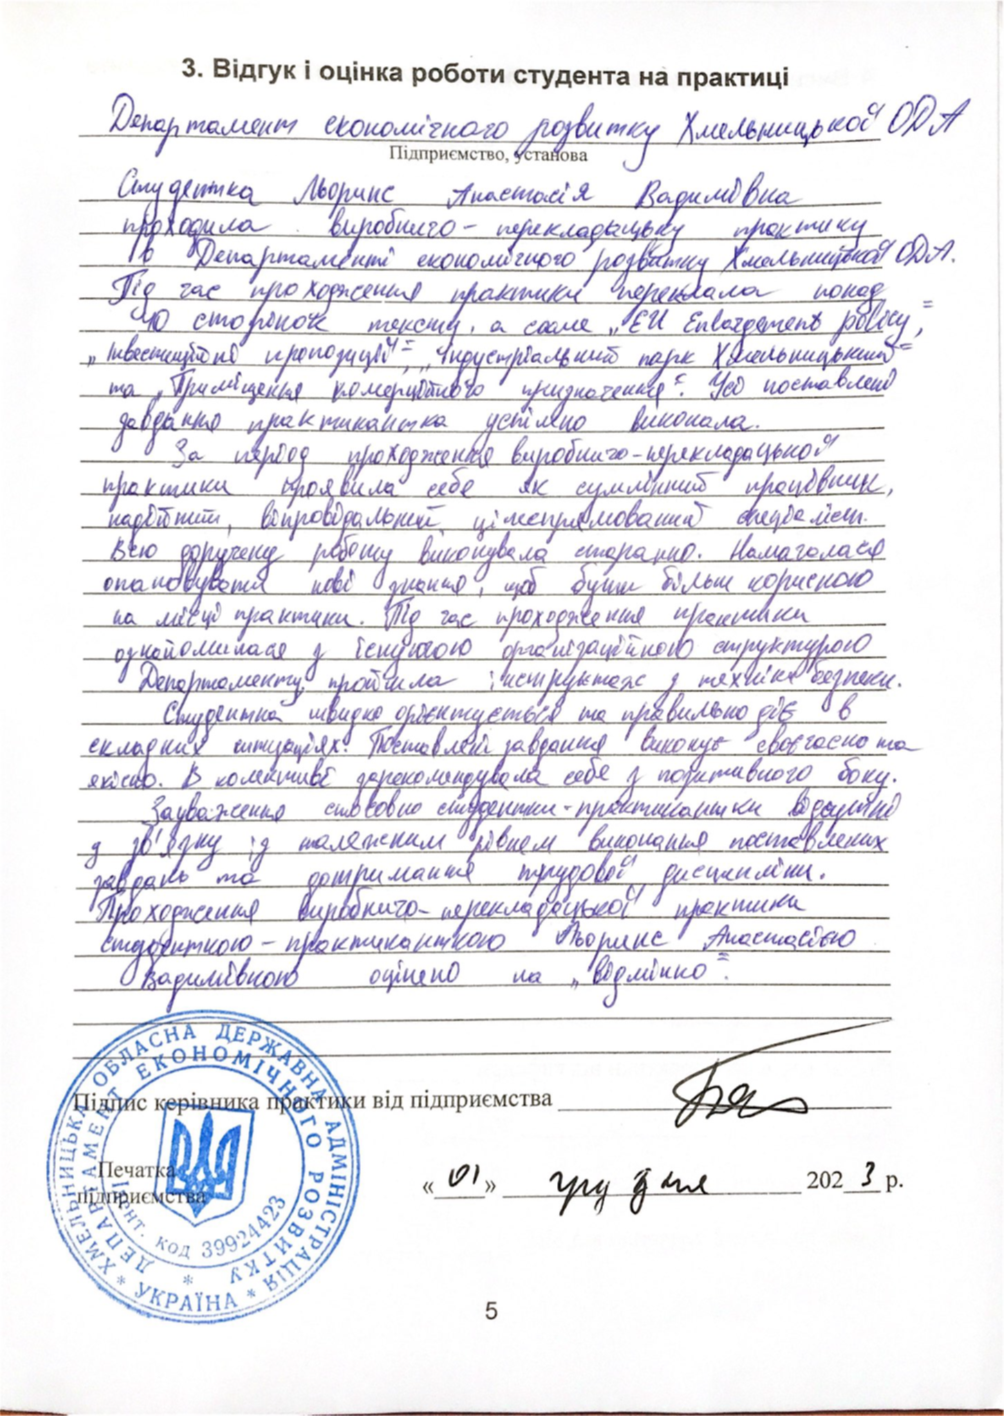 3. Відгук і оцінка роботи студента на практиці
Департамент економічного розвитку Хмельницької ОДА
Підприємство, установа
Студентка Льоринс Анастасія Вадимівна
проходила виробничо-перекладацьку практику
в Департаменті економічного розвитку Хмельницької ОДА.
Під час проходження практики переклала понад
40 сторінок тексту, а саме „EU Enlargement policy",
„Інвестиційні пропозиції", „Індустріальний парк Хмельницький"
та „Приміщення комерційного призначення". Усі поставлені
завдання практикантка успішно виконала.
За період проходження виробничо-перекладацької
практики проявила себе як сумлінний працівник,
надійний, відповідальний, цілеспрямований спеціаліст.
Всю доручену роботу виконувала старанно. Намагалася
опановувати нові знання, щоб бути більш корисною
на місці практики. Під час проходження практики
ознайомилася з існуючою організаційною структурою
Департаменту, пройшла інструктаж з техніки безпеки.
Студентка швидко орієнтується та правильно діє в
складних ситуаціях. Поставлені завдання виконує своєчасно та
якісно. В колективі зарекомендувала себе з позитивного боку.
Зауваження стосовно студентки-практикантки відсутні
у зв'язку із належним рівнем виконання поставлених
завдань та дотримання трудової дисципліни.
Проходження виробничо-перекладацької практики
студенткою-практиканткою Льоринс Анастасією
Вадимівною оцінено на „відмінно".
Підпис керівника практики від підприємства
Печатка
підприємства
«01» грудня 2023 р.
ХМЕЛЬНИЦЬКА ОБЛАСНА ДЕРЖАВНА АДМІНІСТРАЦІЯ * УКРАЇНА *
ДЕПАРТАМЕНТ ЕКОНОМІЧНОГО РОЗВИТКУ *
Ідент. код 39924423
5